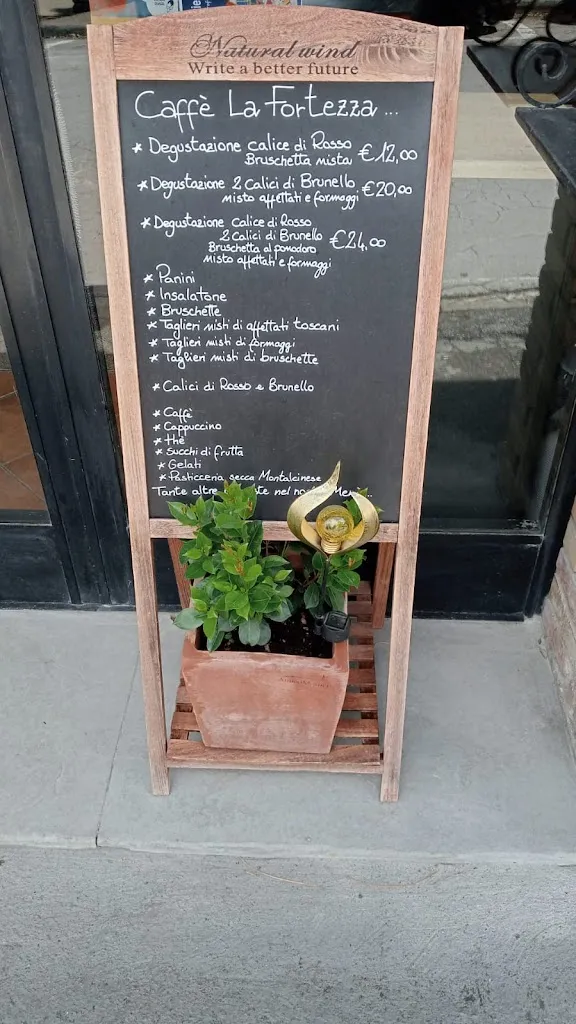 Natural wind
Write a better future
Caffè La Fortezza...
* Degustazione calice di Rosso
Bruschetta mista €12,00
* Degustazione 2 Calici di Brunello
misto affettati e formaggi €20,00
* Degustazione calice di Rosso
2 Calici di Brunello
Bruschetta al pomodoro €24,00
misto affettati e formaggi
* Panini
* Insalatone
* Bruschette
* Taglieri misti di affettati toscani
* Taglieri misti di formaggi
* Taglieri misti di bruschette
* Calici di Rosso e Brunello
* Caffè
* Cappuccino
* thè
* Succhi di frutta
* Gelati
* Pasticceria secca Montalcinese
Tante altre nel